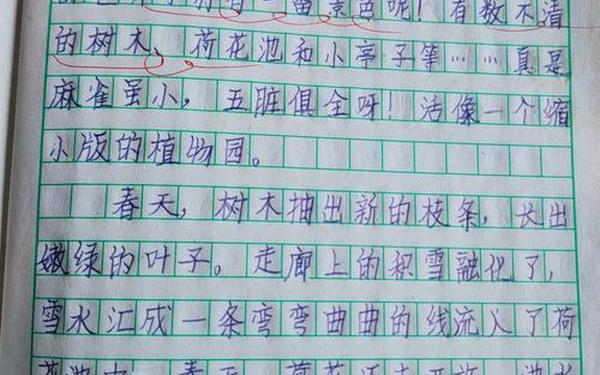 别有一番景色呢！有数不清
的树木、荷花池和小亭子等……真是
麻雀虽小，五脏俱全呀！活像一个缩
小版的植物园。
春天，树木抽出新的枝条，长出
嫩绿的叶子。走廊上的积雪融化了，
雪水汇成一条弯弯曲曲的线流入了荷
花池中。春天，荷花还未开放，池水